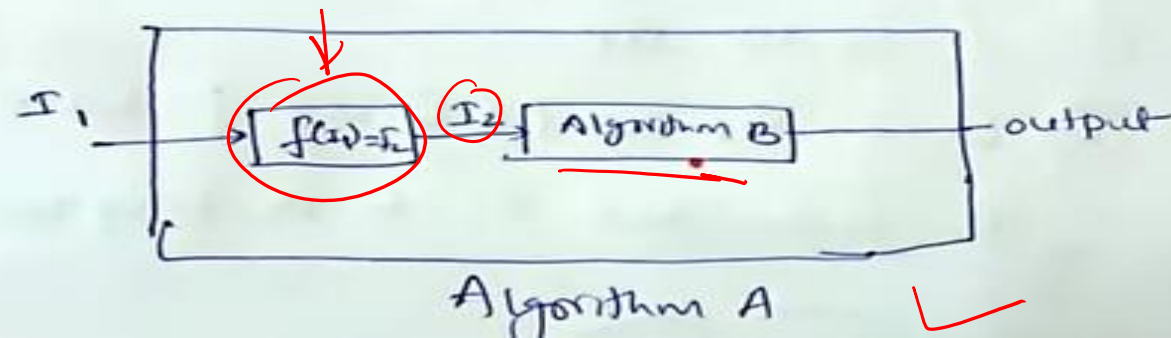 I₁
f(I₁)=I₂
I₂
Algorithm B
output
Algorithm A